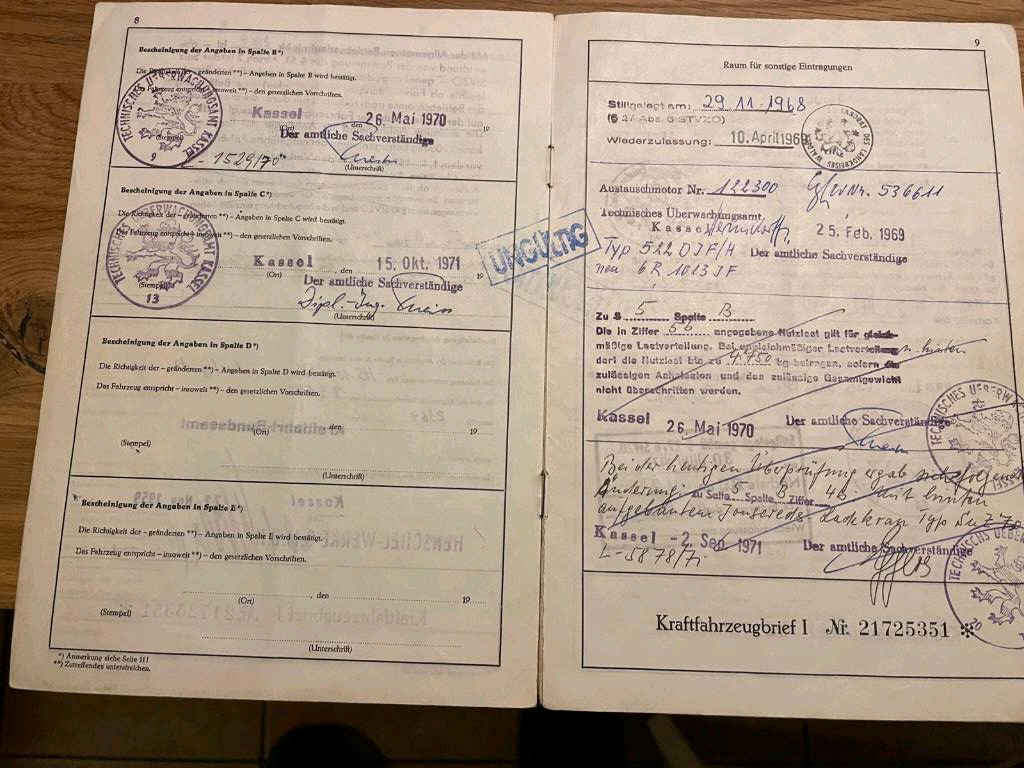 8
Bescheinigung der Angaben in Spalte B*)
Die Richtigkeit der – geänderten **) – Angaben in Spalte B wird bestätigt.
Das Fahrzeug entspricht – insoweit **) – den gesetzlichen Vorschriften.
TECHNISCHES UEBERWACHUNGSAMT KASSEL
9
Kassel, den 26. Mai 1970 19
(Ort)
(Stempel)
Der amtliche Sachverständige
(Unterschrift)
- 1529/70
Bescheinigung der Angaben in Spalte C*)
Die Richtigkeit der – geänderten **) – Angaben in Spalte C wird bestätigt.
Das Fahrzeug entspricht – insoweit **) – den gesetzlichen Vorschriften.
TECHNISCHES UEBERWACHUNGSAMT KASSEL
13
Kassel, den 15. Okt. 1971 19
(Ort)
(Stempel)
Der amtliche Sachverständige
Dipl.-Ing.
(Unterschrift)
Bescheinigung der Angaben in Spalte D*)
Die Richtigkeit der – geänderten **) – Angaben in Spalte D wird bestätigt.
Das Fahrzeug entspricht – insoweit **) – den gesetzlichen Vorschriften.
, den 19
(Ort)
(Stempel)
(Unterschrift)
Bescheinigung der Angaben in Spalte E*)
Die Richtigkeit der – geänderten **) – Angaben in Spalte E wird bestätigt.
Das Fahrzeug entspricht – insoweit **) – den gesetzlichen Vorschriften.
, den 19
(Ort)
(Stempel)
(Unterschrift)
*) Anmerkung siehe Seite III!
**) Zutreffendes unterstreichen.
UNGÜLTIG
9
Raum für sonstige Eintragungen
Stillgelegt am: 29.11.1968
(§ 27 Abs. 6 StVZO)
Wiederzulassung: 10. April 1969
LANDRAT DES LANDKREISES
Austauschmotor Nr. 122300 536611
Technisches Überwachungsamt,
Kassel 25. Feb. 1969
Typ 512 DJF/H Der amtliche Sachverständige
neu 6R 1013 JF
Zu S 5 Spalte B
Die in Ziffer 5b angegebene Nutzlast gilt für gleich-
mäßige Lastverteilung. Bei ungleichmäßiger Lastverteilung n. hinten
darf die Nutzlast bis zu 4.750 kg betragen, sofern die
zulässigen Achslasten und das zulässige Gesamtgewicht
nicht überschritten werden.
Kassel 26. Mai 1970 Der amtliche Sachverständige
TECHNISCHES UEBERW
Bei der heutigen Überprüfung ergab sich folgende
Änderung: zu Seite 5 Spalte B Ziffer 4b mit hinten
aufgebautem Jonsereds-Ladekran Typ
Kassel -2. Sep. 1971 Der amtliche Sachverständige
L-5878/71
TECHNISCHES UEBERW
Kraftfahrzeugbrief I Nr. 21725351 ✻